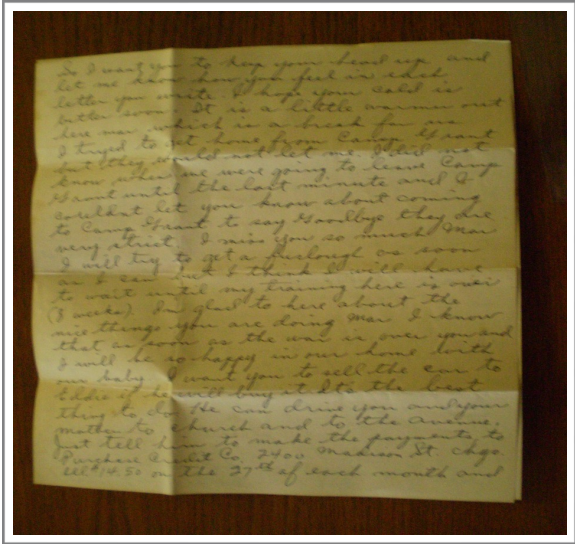 So I want you to keep your head up and
let me know how you feel in each
letter you write. I hope your cold is
better soon. It is a little warmer out
here mar which is a break for us
I tryed to get home from Camp Grant
but they would not let me. I did not
know when we were going to leave Camp
Grant until the last minute and I
couldnt let you know about coming
to Camp Grant to say Goodbye they are
very strict. I miss you so much Mar
I will try to get a furlough as soon
as I can but I think I will have
to wait until my training here is over
(8 weeks). Im glad to here about the
nice things you are doing Mar I know
that as soon as the war is over you and
I will be so happy in our home with
our baby I want you to sell the car to
if he will buy it Its the best
thing to do. He can drive you and your
mother to church and to the avenue.
Just tell him to make the payments to
Purchase Credit Co. 2400 Madison St. Chgo.
Ill $14.50 on the 27th of each month and